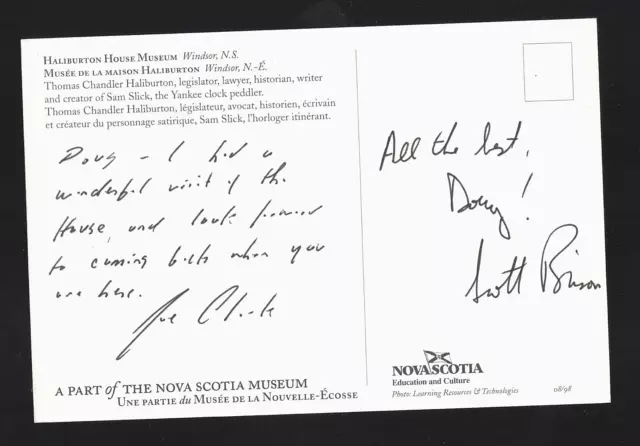 HALIBURTON HOUSE MUSEUM Windsor, N.S.
MUSÉE DE LA MAISON HALIBURTON Windsor, N.-É.
Thomas Chandler Haliburton, legislator, lawyer, historian, writer
and creator of Sam Slick, the Yankee clock peddler.
Thomas Chandler Haliburton, législateur, avocat, historien, écrivain
et créateur du personnage satirique, Sam Slick, l'horloger itinérant.
Doug – I had a
wonderful visit of the
House, and look forward
to coming back when you
are here.
Joe Clark
A PART of THE NOVA SCOTIA MUSEUM
UNE PARTIE du MUSÉE DE LA NOUVELLE-ÉCOSSE
All the best,
Doug!
Scott Brison
NOVA SCOTIA
Education and Culture
Photo: Learning Resources & Technologies
08/98